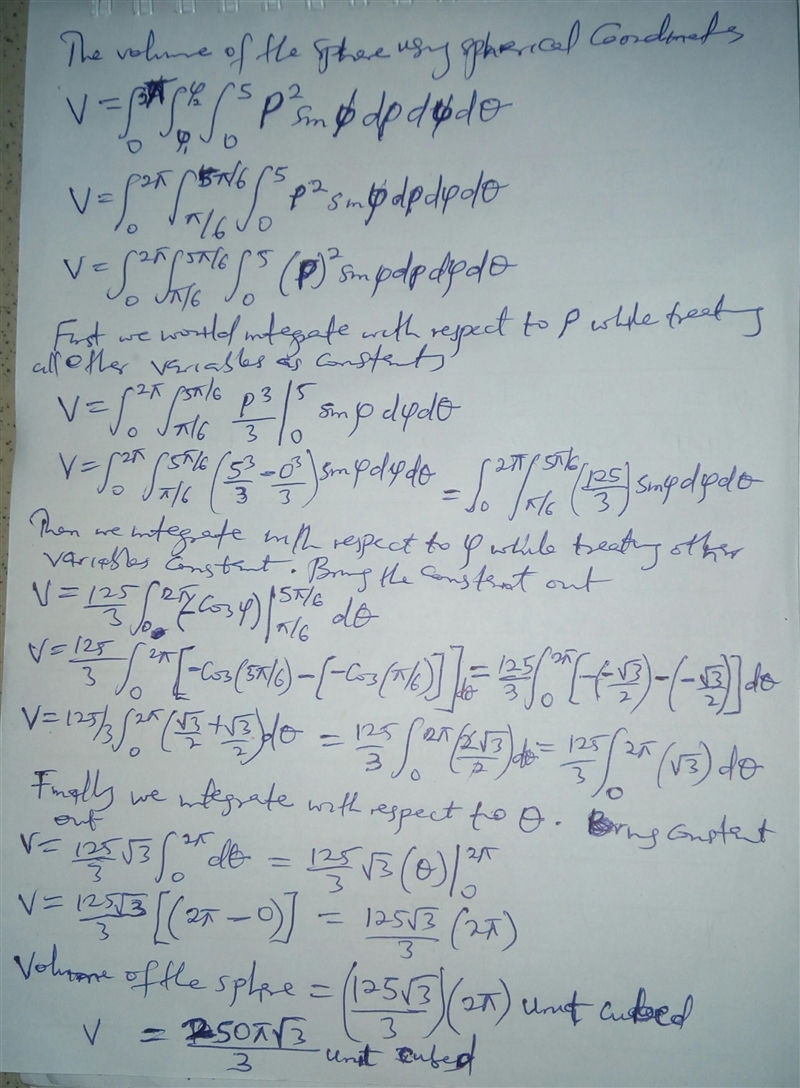 The volume of the sphere using spherical Coordinates
V = ∫₀^2π ∫_φ₁^φ₂ ∫₀^5 ρ² sin φ dρ dφ dθ
V = ∫₀^2π ∫_π/6^5π/6 ∫₀^5 ρ² sin φ dρ dφ dθ
V = ∫₀^2π ∫_π/6^5π/6 ∫₀^5 (ρ)² sin φ dρ dφ dθ
First we would integrate with respect to ρ while treating
all other variables as constants
V = ∫₀^2π ∫_π/6^5π/6 ρ³/3 |₀^5 sin φ dφ dθ
V = ∫₀^2π ∫_π/6^5π/6 (5³/3 - 0³/3) sin φ dφ dθ = ∫₀^2π ∫_π/6^5π/6 (125/3) sin φ dφ dθ
Then we integrate with respect to φ while treating other
variables constant. Bring the constant out
V = 125/3 ∫₀^2π (-Cos φ) |_π/6^5π/6 dθ
V = 125/3 ∫₀^2π [-Cos(5π/6) - [-Cos(π/6)]] dθ = 125/3 ∫₀^2π [-(-√3/2) - (-√3/2)] dθ
V = 125/3 ∫₀^2π (√3/2 + √3/2) dθ = 125/3 ∫₀^2π (2√3/2) dθ = 125/3 ∫₀^2π (√3) dθ
Finally we integrate with respect to θ. Bring constant
out
V = 125/3 √3 ∫₀^2π dθ = 125/3 √3 (θ) |₀^2π
V = 125√3/3 [(2π - 0)] = 125√3/3 (2π)
Volume of the sphere = (125√3/3) (2π) unit cubed
V = 250π√3/3 unit cubed